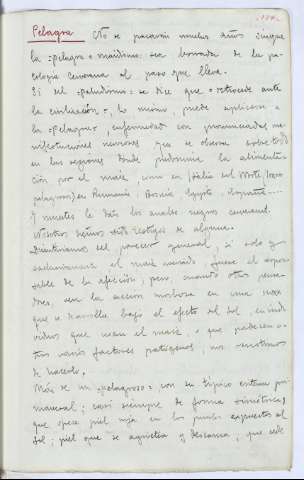 Pelagra No se pasarán muchos años sin que
la "pelagra o maidismo" sea borrada de la pa-
tología humana al paso que lleva.
Si del "paludismo" se dice que "retrocede ante
la civilización", lo mismo puede aplicarse a
la "pelagra", enfermedad con pronunciadas ma-
nifestaciones nerviosas que se observa sobre todo
en las regiones donde predomina la alimenta-
ción por el maíz, como en Italia del Norte
pelagrosos) en Rumanía, Bosnia, Egipto, España
y muestra le dan los anales negros
Nosotros somos testigos de alguna.
del parecer general, si solo y
exclusivamente el maíz averiado fuese el respon-
sable de la afección; pero, cuando otros pensa-
dores, ven la acción morbosa en una
que se desarrolla bajo el efecto del sol, en indi-
viduos que usan el maíz, o que padecen o-
tros varios factores patógenos, nos
de hacerlo.
Más de un "pelagroso" con su típico eritema pri-
maveral; casi siempre de forma simétrica,
que opera piel roja en los puntos expuestos al
sol; piel que se agrieta y descama, que